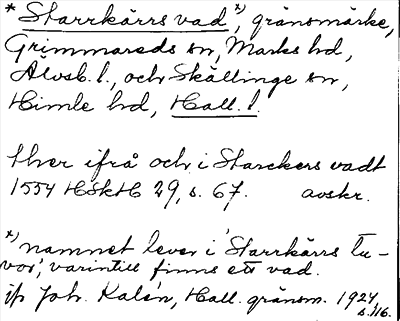 * Starrkärrs vad *), gränsmärke,
Grimmareds sn, Marks hd,
Älvsb. l., och Skällinge sn,
Himle hd, Hall. l.
ther ifrå och i Starckers vadt
1554 HSkH 29, s. 67. avskr.
*) namnet lever i 'Starrkärrs tu-
vor', varintill finns ett vad.
Joh. Kalén, Hall. gränsm. 1924,
s. 116.